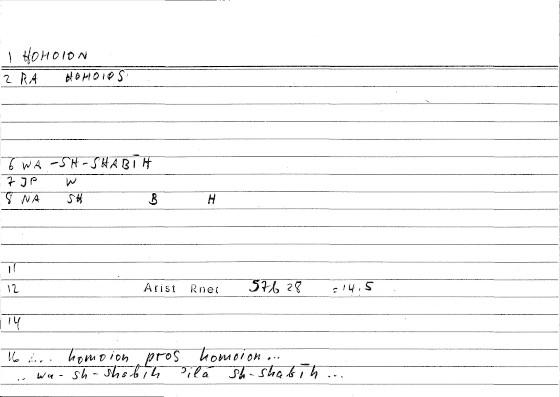 1 HOMOION
2 RA HOMOIOS
6 WA-SH-SHABĪH
7 JP W
8 NA SH B H
11
12 Arist Rhet 57b 28 =14.5
14
16 ... homoion pros homoion...
.. wa-sh-shabīh 'ilā sh-shabīh ...